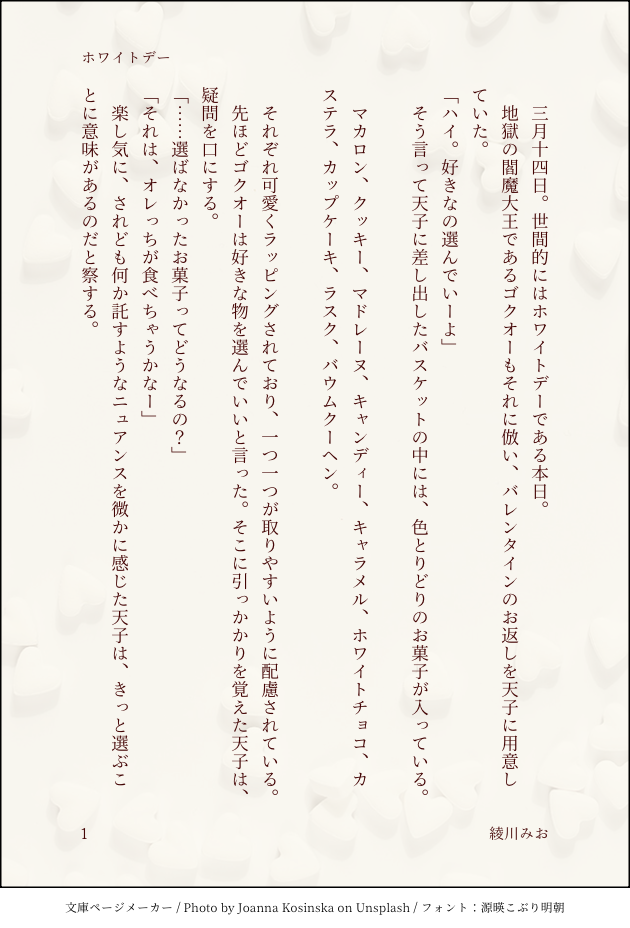 ホワイトデー
　三月十四日。世間的にはホワイトデーである本日。
　地獄の閻魔大王であるゴクオーもそれに倣い、バレンタインのお返しを天子に用意し
ていた。
「ハイ。好きなの選んでいーよ」
　そう言って天子に差し出したバスケットの中には、色とりどりのお菓子が入っている。
　マカロン、クッキー、マドレーヌ、キャンディー、キャラメル、ホワイトチョコ、カ
ステラ、カップケーキ、ラスク、バウムクーヘン。
　それぞれ可愛くラッピングされており、一つ一つが取りやすいように配慮されている。
　先ほどゴクオーは好きな物を選んでいいと言った。そこに引っかかりを覚えた天子は、
疑問を口にする。
「……選ばなかったお菓子ってどうなるの？」
「それは、オレっちが食べちゃうかなー」
　楽し気に、されども何か託すようなニュアンスを微かに感じた天子は、きっと選ぶこ
とに意味があるのだと察する。
綾川みお
1
文庫ページメーカー / Photo by Joanna Kosinska on Unsplash / フォント：源暎こぶり明朝